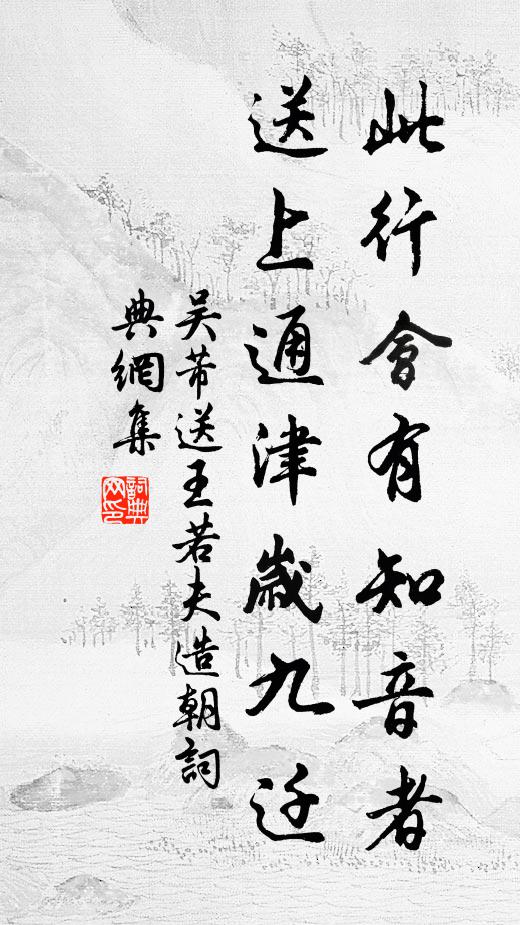 此行會有知音者
送上通津歲九迁
吴芾送王若夫造朝詞
典網集
詞典网印